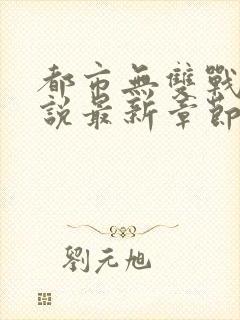 都市無雙戰
說最新章節
劉元旭